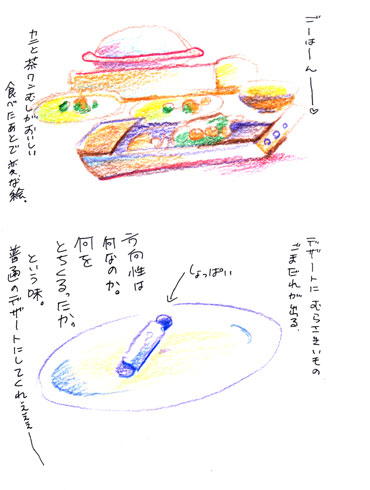 ごーはーん——♡
カニと茶ワンむしがおいしい
食べたあとで変な絵。
デザートにむらさきいもの
ごまだれが出る。
しょっぱい
方向性は
何なのか。
何を
とちくるったか。
という味。
普通のデザートにしてくれぇぇぇー